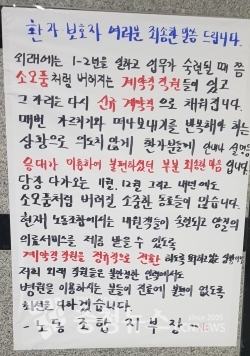 환자 보호자 여러분 죄송한 말씀 드립니다.
외래에는 1-2년을 일하고 업무가 숙련될 때 쯤
소모품처럼 버려지는 계약직 직원들이 있고
그 자리는 다시 신규 계약직으로 채워집니다.
매번 가르치고 떠나보내기를 반복해야 하는
상황으로 의도치 않게 환자분들께 안내나 설명
응대가 미흡하여 불편하셨던 부분 죄송한 말씀 드립니다.
당장 다가오는 11월, 12월 그리고 내년에도
소모품처럼 버려질 소중한 동료들이 많습니다.
현재 노동조합에서는 내원객들이 숙련되고 양질의
의료서비스를 제공 받을 수 있도록
계약직 직원을 정규직으로 전환 하도록
저희 외래 직원들은 불안정한 인력에서도
병원을 이용하시는 분들이 진료에 불편이 없도록
최선을 다하겠습니다.
- 노동조합 지부장 -
since 2005
충청뉴스